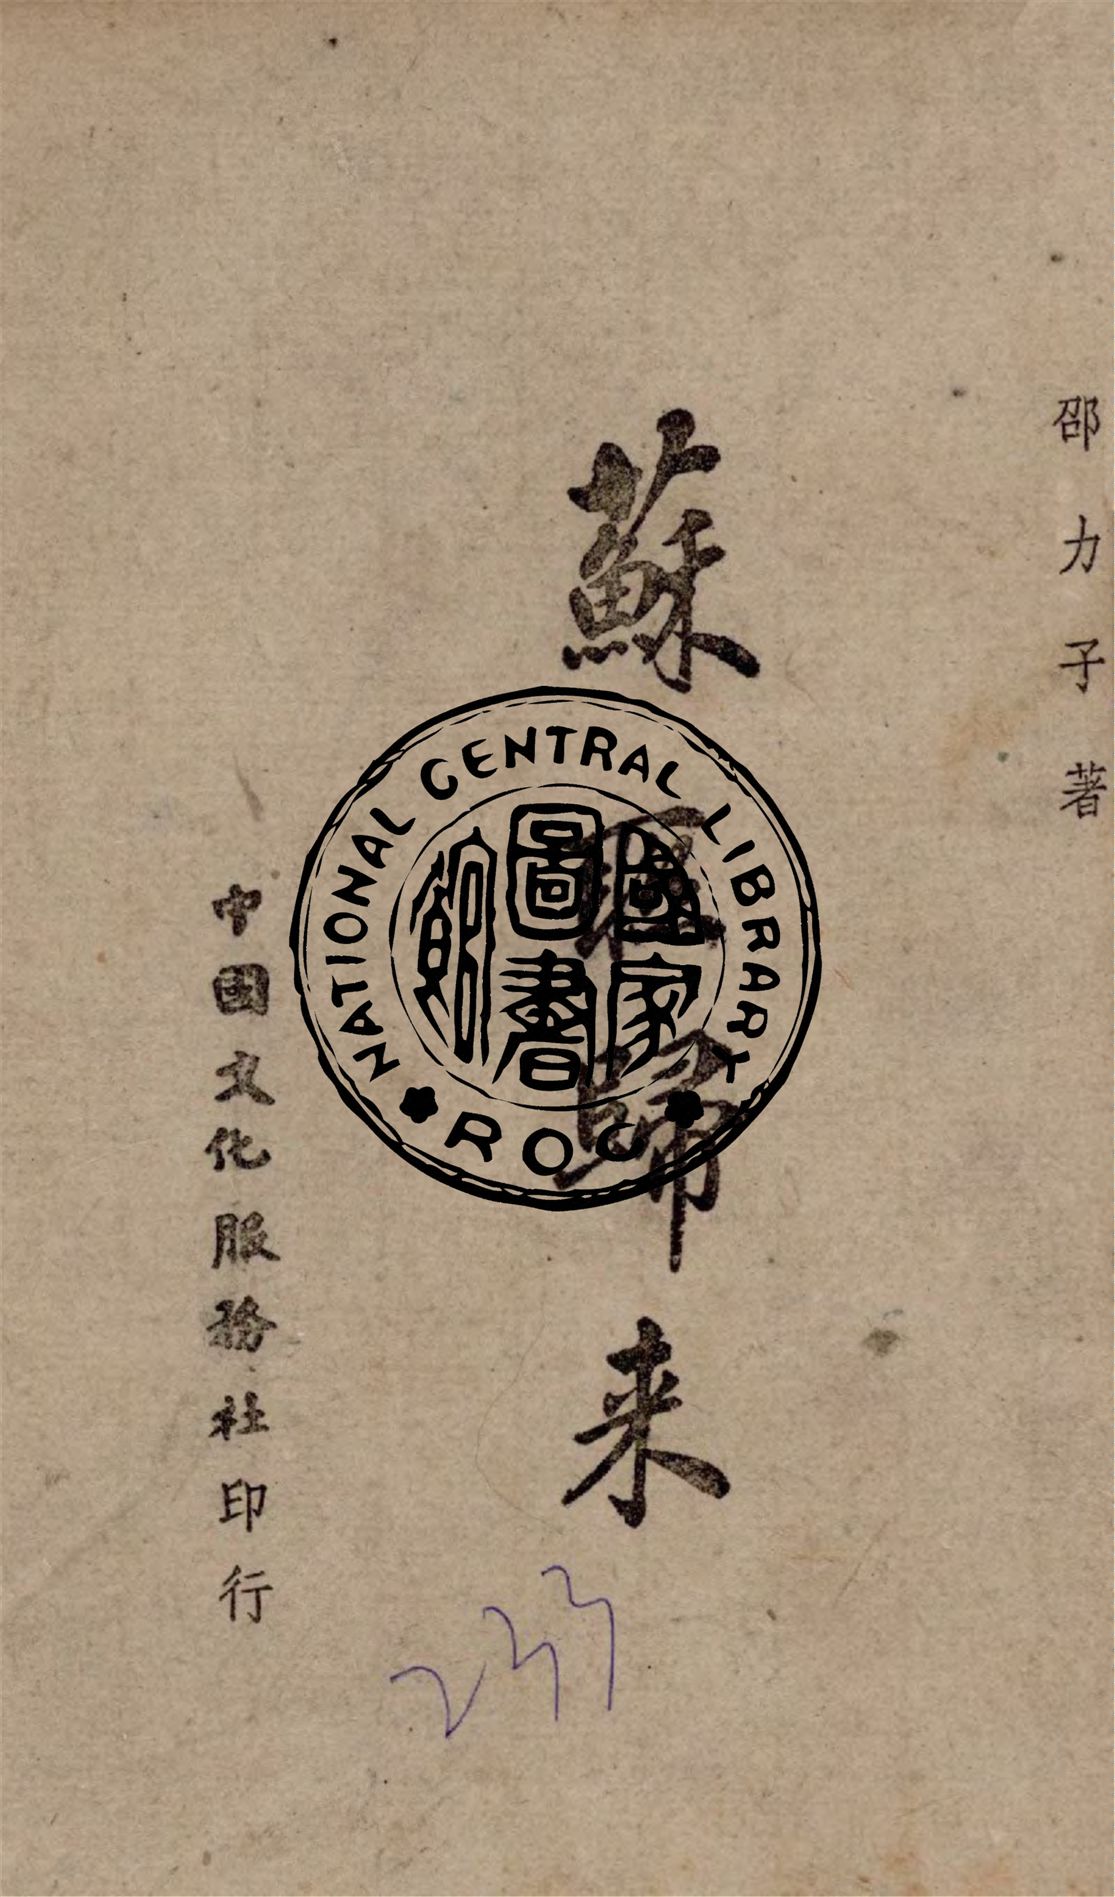 邵力子著
蘇聯歸来
中國文化服務社印行
NATIONAL CENTRAL LIBRARY
國家
圖書
館
ROC
233